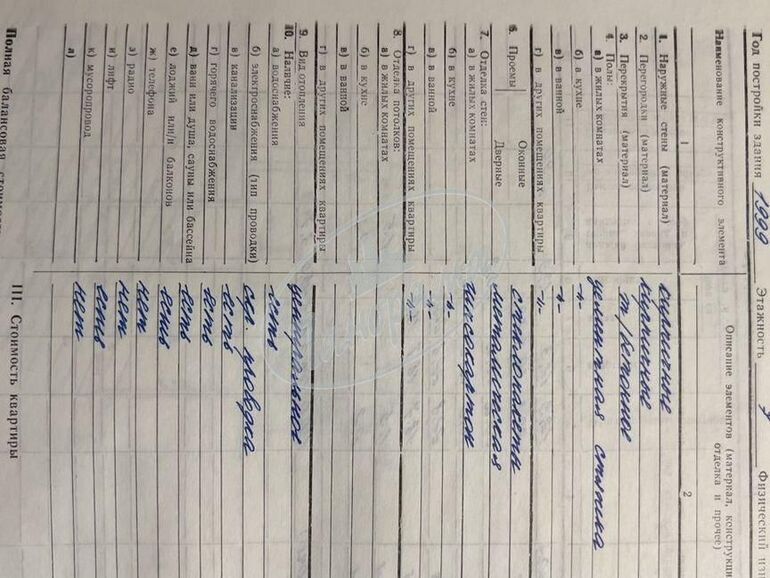 Год постройки здания 1999 Этажность Физический из
Наименование конструктивного элемента Описание элементов (материал, конструкци отделка и прочее)
1 2
1. Наружные стены (материал) кирпичные
2. Перегородки (материал) кирпичные
3. Перекрытия (материал) т/бетонное
4. Полы:
а) в жилых комнатах цементная стяжка
б) в кухне -"-
в) в ванной -"-
г) в других помещениях квартиры -"-
6. Проемы Оконные стеклопакеты
Дверные металическая
7. Отделка стен:
а) в жилых комнатах гипсокартон
б) в кухне -"-
в) в ванной -"-
г) в других помещениях квартиры -"-
8. Отделка потолков:
а) в жилых комнатах
б) в кухне
в) в ванной
г) в других помещениях квартиры
9. Вид отопления центральное
10. Наличие:
а) водоснабжения есть
б) электроснабжения (тип проводки) скр. проводка
в) канализации есть
г) горячего водоснабжения есть
д) ванн или душа, сауны или бассейна есть
е) лоджий или/и балконов есть
ж) телефона нет
з) радио нет
и) лифт есть
к) мусоропровод нет
л)
III. Стоимость квартиры
Полная балансовая стоимость